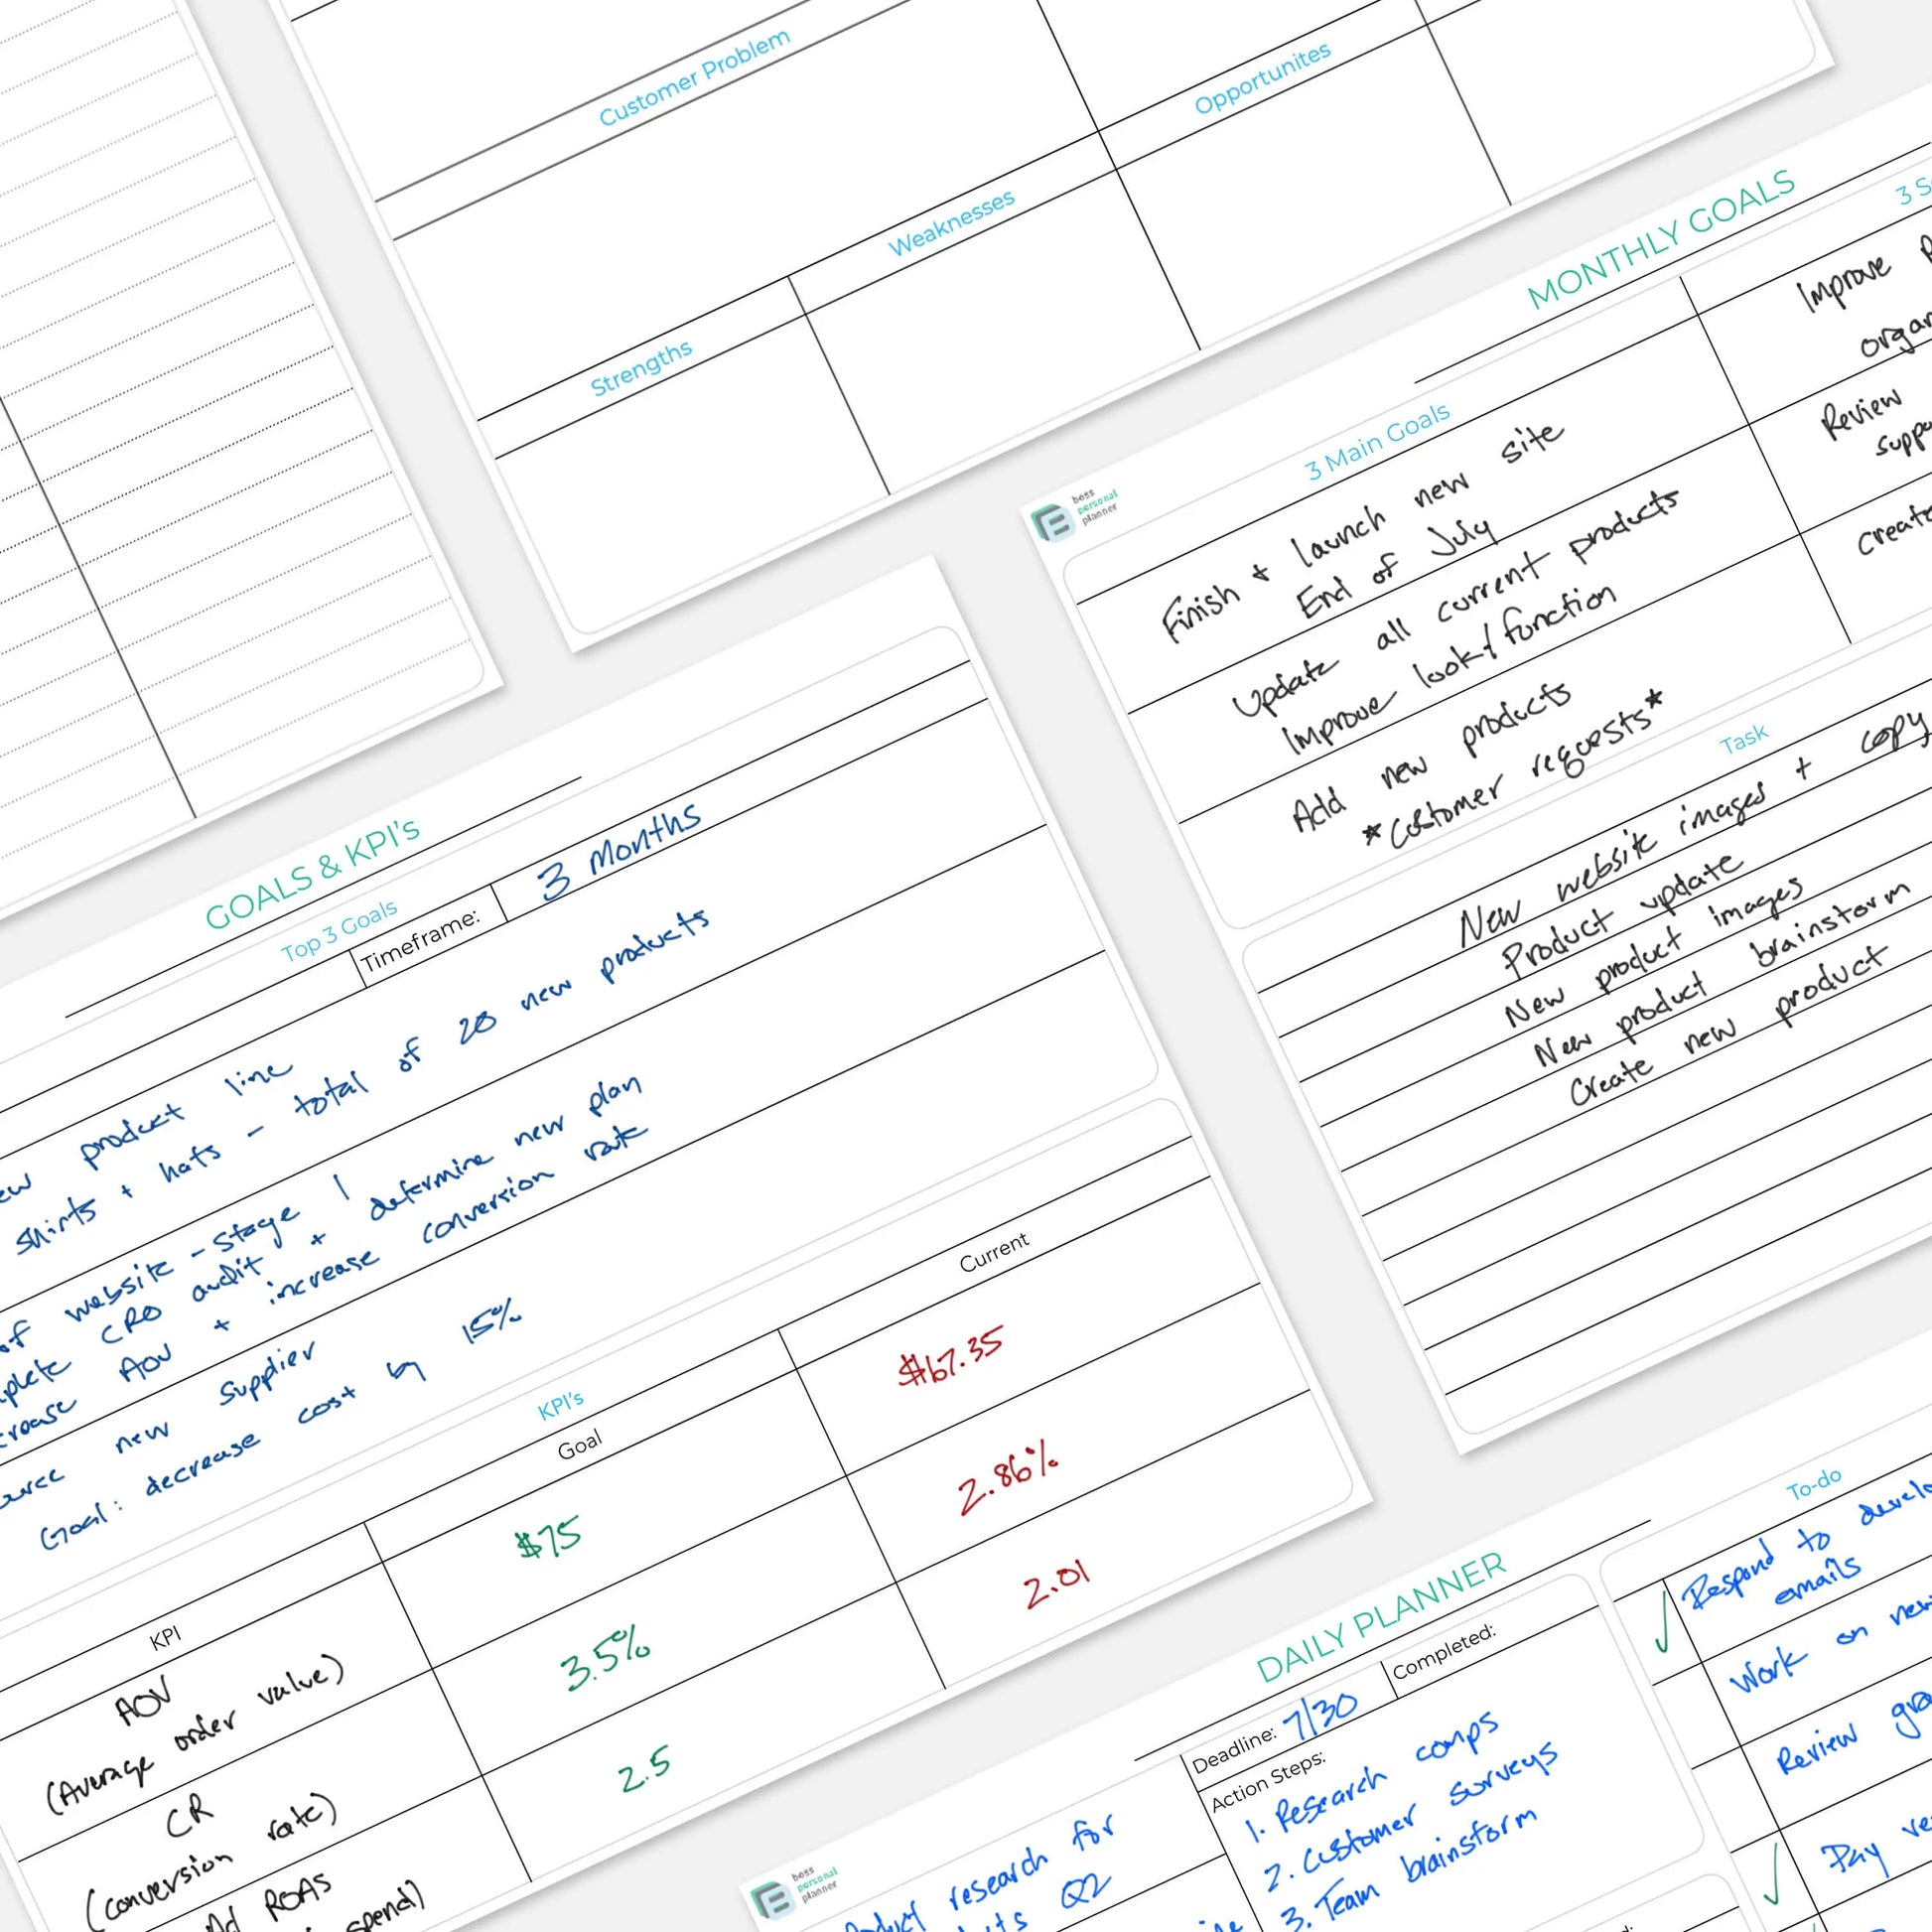 Customer Problem
Opportunites
Weaknesses
Strengths
MONTHLY GOALS
boss
personal
planner
3 Main Goals
Finish & launch new site
End of July
Update all current products
Improve look/function
Add new products
*Customer requests*
3
Improve
Review
Task
New website images + copy
Product update
New product images
New product brainstorm
Create new product
GOALS & KPI's
Top 3 Goals
Timeframe:
3 Months
product line
shirts + hats - total of 20 new products
of website - Stage 1
CRO audit + determine new plan
AOV + increase conversion rate
new supplier
Goal: decrease cost by 15%
KPI's
KPI
Goal
Current
AOV
(Average order value)
$75
$67.35
CR
(conversion rate)
3.5%
2.86%
ROAS
spend)
2.5
2.01
DAILY PLANNER
boss
personal
planner
research for
Q2
Deadline: 7/30
Completed:
Action Steps:
1. Research comps
2. Customer surveys
3. Team brainstorm
To-do
Respond to
emails
Work on
Review
Pay